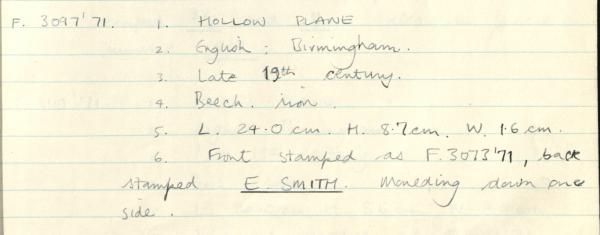 F. 3097'71. 1. HOLLOW PLANE
2. English : Birmingham.
3. Late 19th century.
4. Beech. iron.
5. L. 24.0 cm. H. 8.7 cm. W. 1.6 cm.
6. Front stamped as F.3073'71, back
stamped E. SMITH. Moulding down one
side.